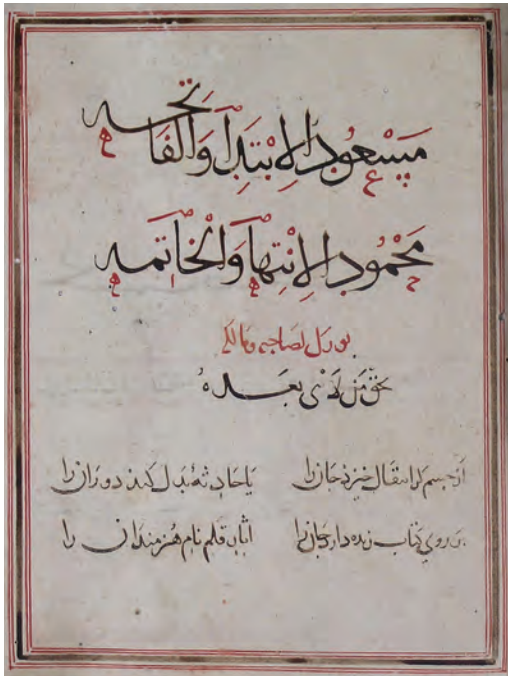 مَسْعُودُ الاِبْتِدَآ وَالْفَاتحه
مَحْمُودُ الاِنْتِهَآ وَالْخَاتمَه
بورك لصاحبه ومالكه
بحق من لا نبى بعده
از جسم کر انتقال خیزد جان را یا حادثهٔ بدل کند دوران را
بر روي کتاب زنده دارد جان را اثبات قلم نام هنرمندان را